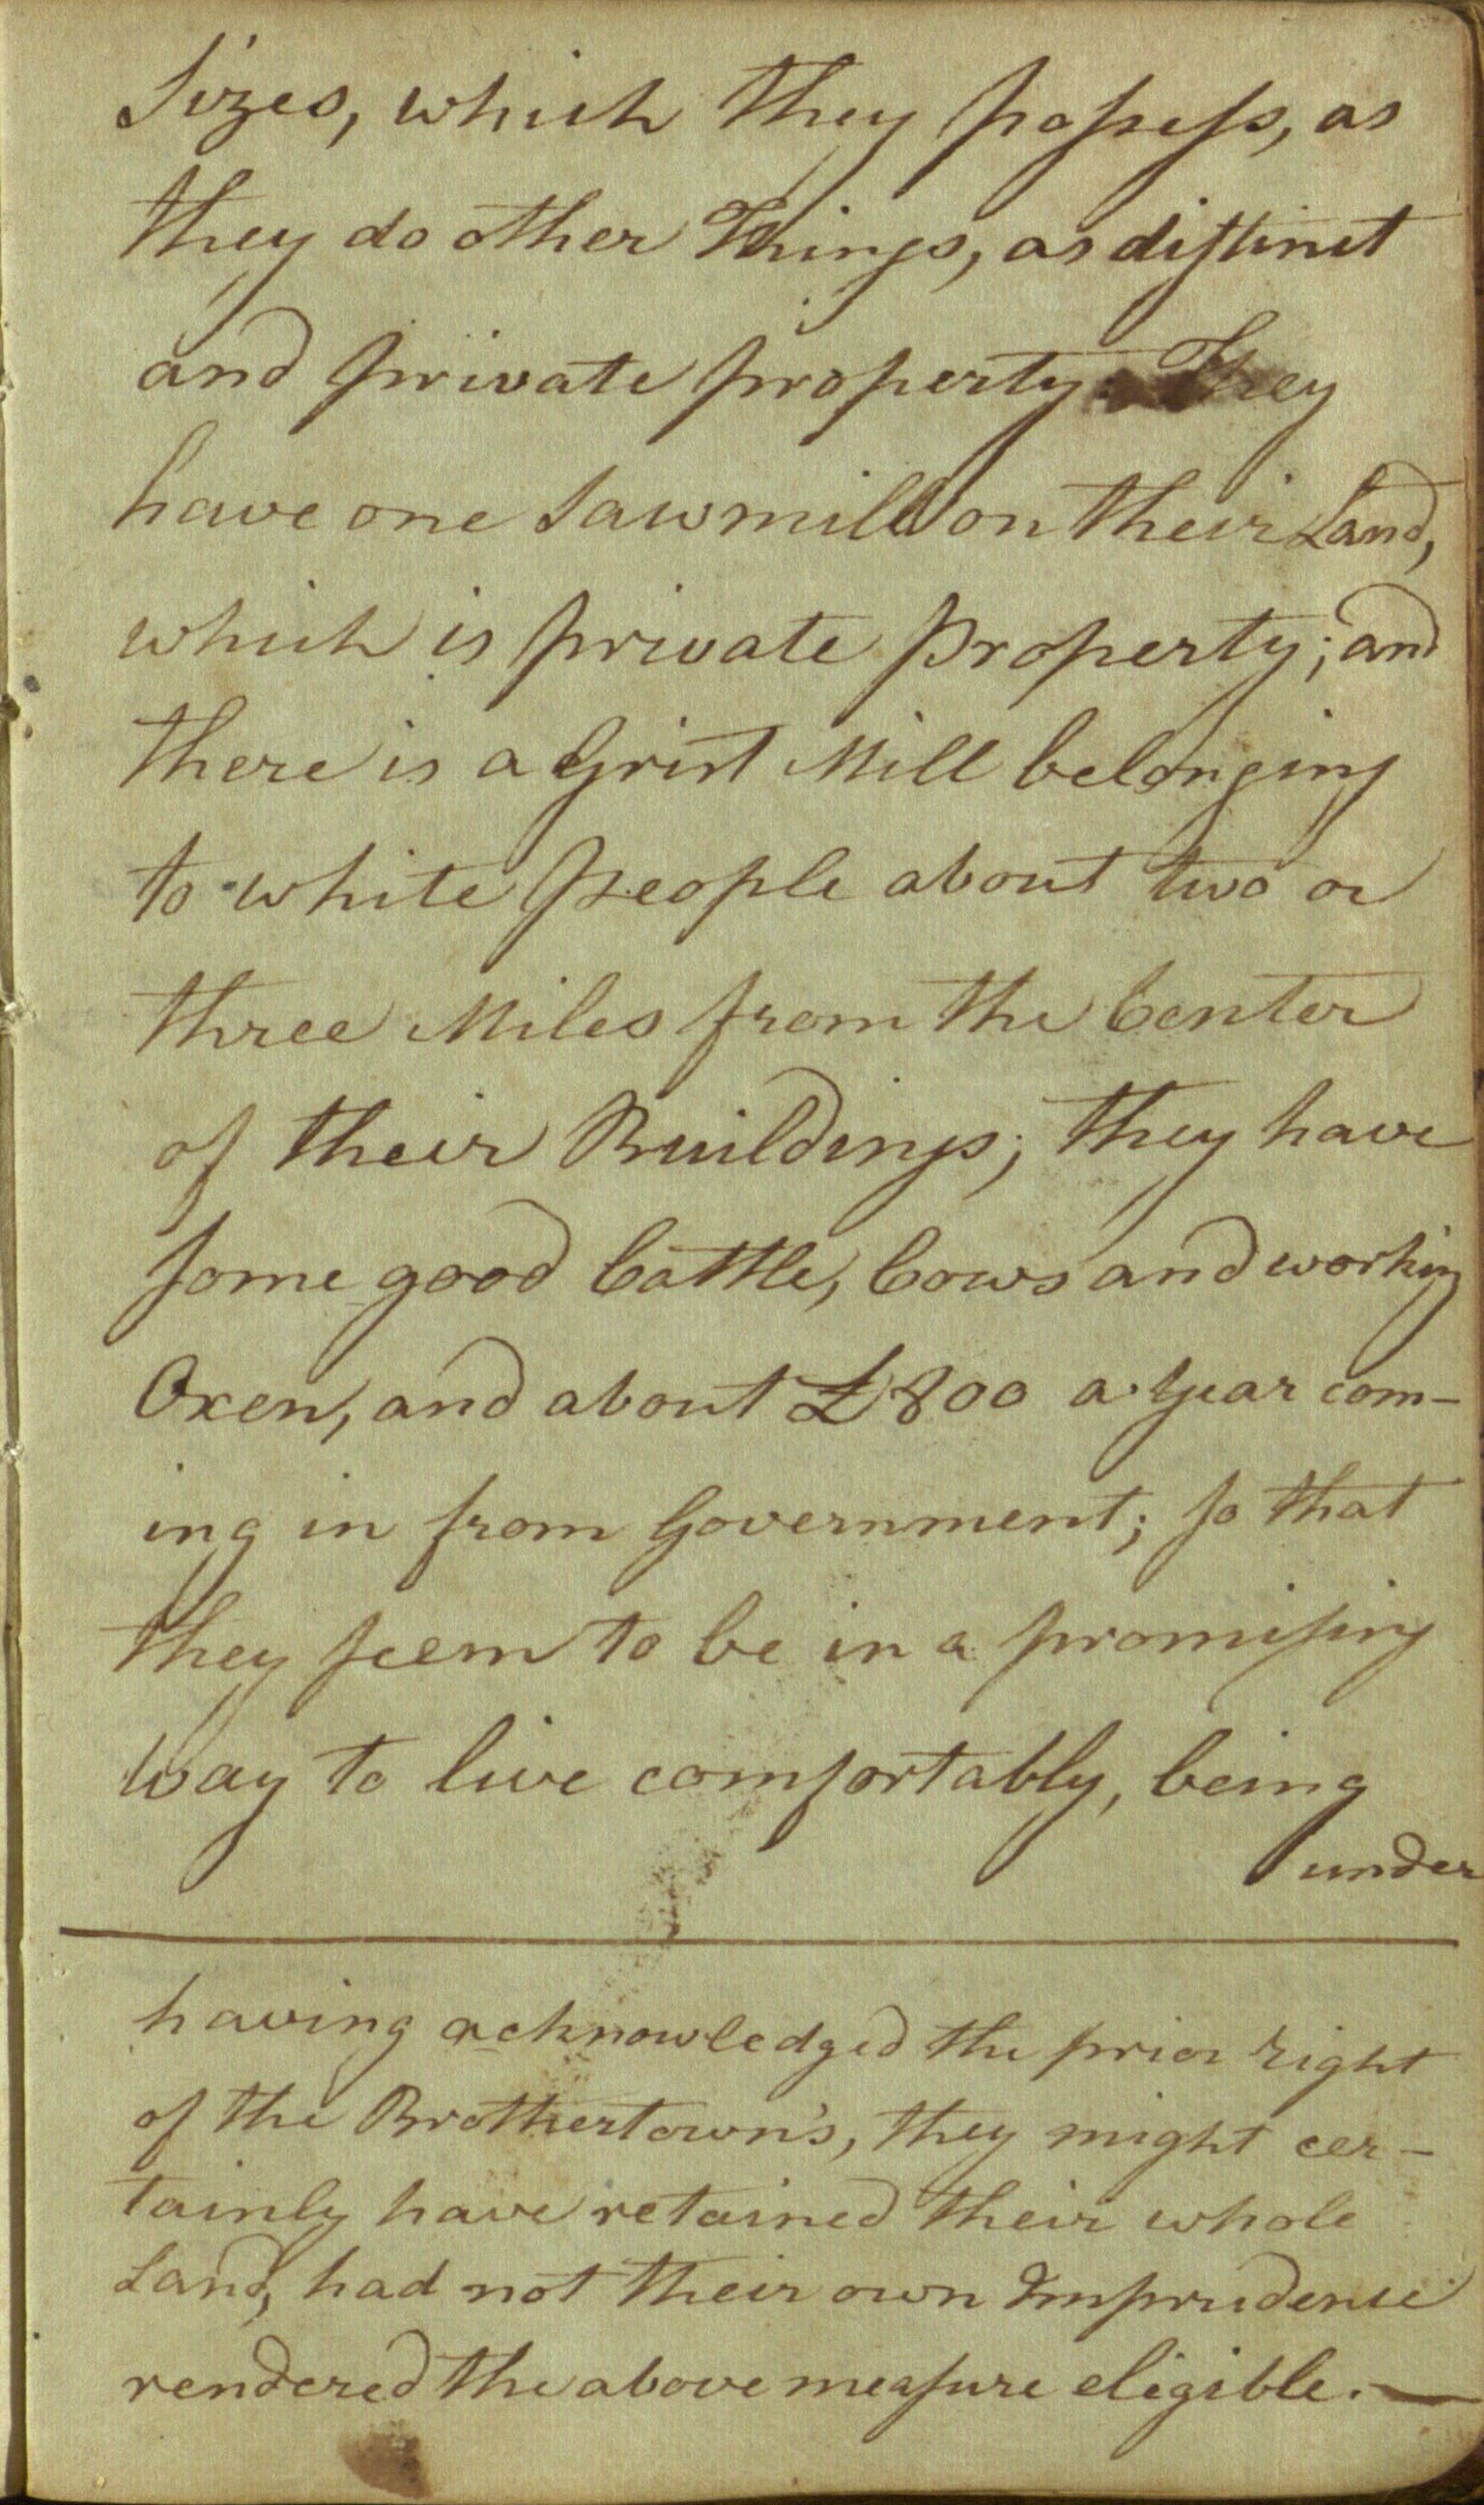 Sizes, which they possess, as
they do other Things, as distinct
and private property. They
have one Sawmill on their Land,
which is private Property; and
there is a Grist Mill belonging
to white People about two or
three Miles from the Center
of their Buildings; they have
some good Cattle, Cows and working
Oxen, and about £800 a Year com-
ing in from Government; so that
they seem to be in a promising
Way to live comfortably, being
under
having acknowledged the prior right
of the Brothertown's, they might cer-
tainly have retained their whole
Land, had not their own Imprudence
rendered the above measure eligible.—